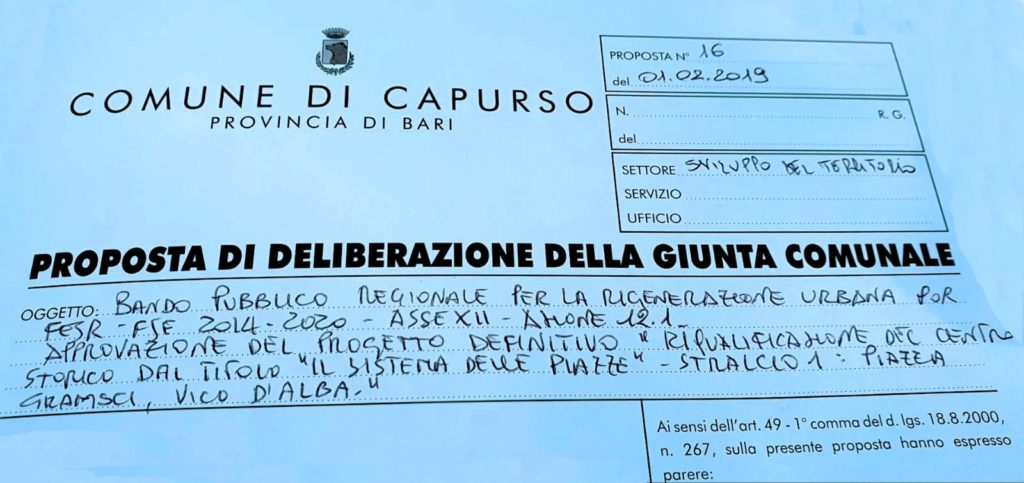 COMUNE DI CAPURSO
PROVINCIA DI BARI
PROPOSTA N° 16
del 01.02.2019
N. R. G.
del
SETTORE SVILUPPO DEL TERRITORIO
SERVIZIO
UFFICIO
PROPOSTA DI DELIBERAZIONE DELLA GIUNTA COMUNALE
OGGETTO: BANDO PUBBLICO REGIONALE PER LA RIGENERAZIONE URBANA POR
FESR - FSE 2014-2020 - ASSE XII - AZIONE 12.1.
APPROVAZIONE DEL PROGETTO DEFINITIVO "RIQUALIFICAZIONE DEL CENTRO
STORICO DAL TITOLO "IL SISTEMA DELLE PIAZZE" - STRALCIO 1: PIAZZA
GRAMSCI, VICO D'ALBA."
Ai sensi dell'art. 49 - 1° comma del d. lgs. 18.8.2000,
n. 267, sulla presente proposta hanno espresso
parere: